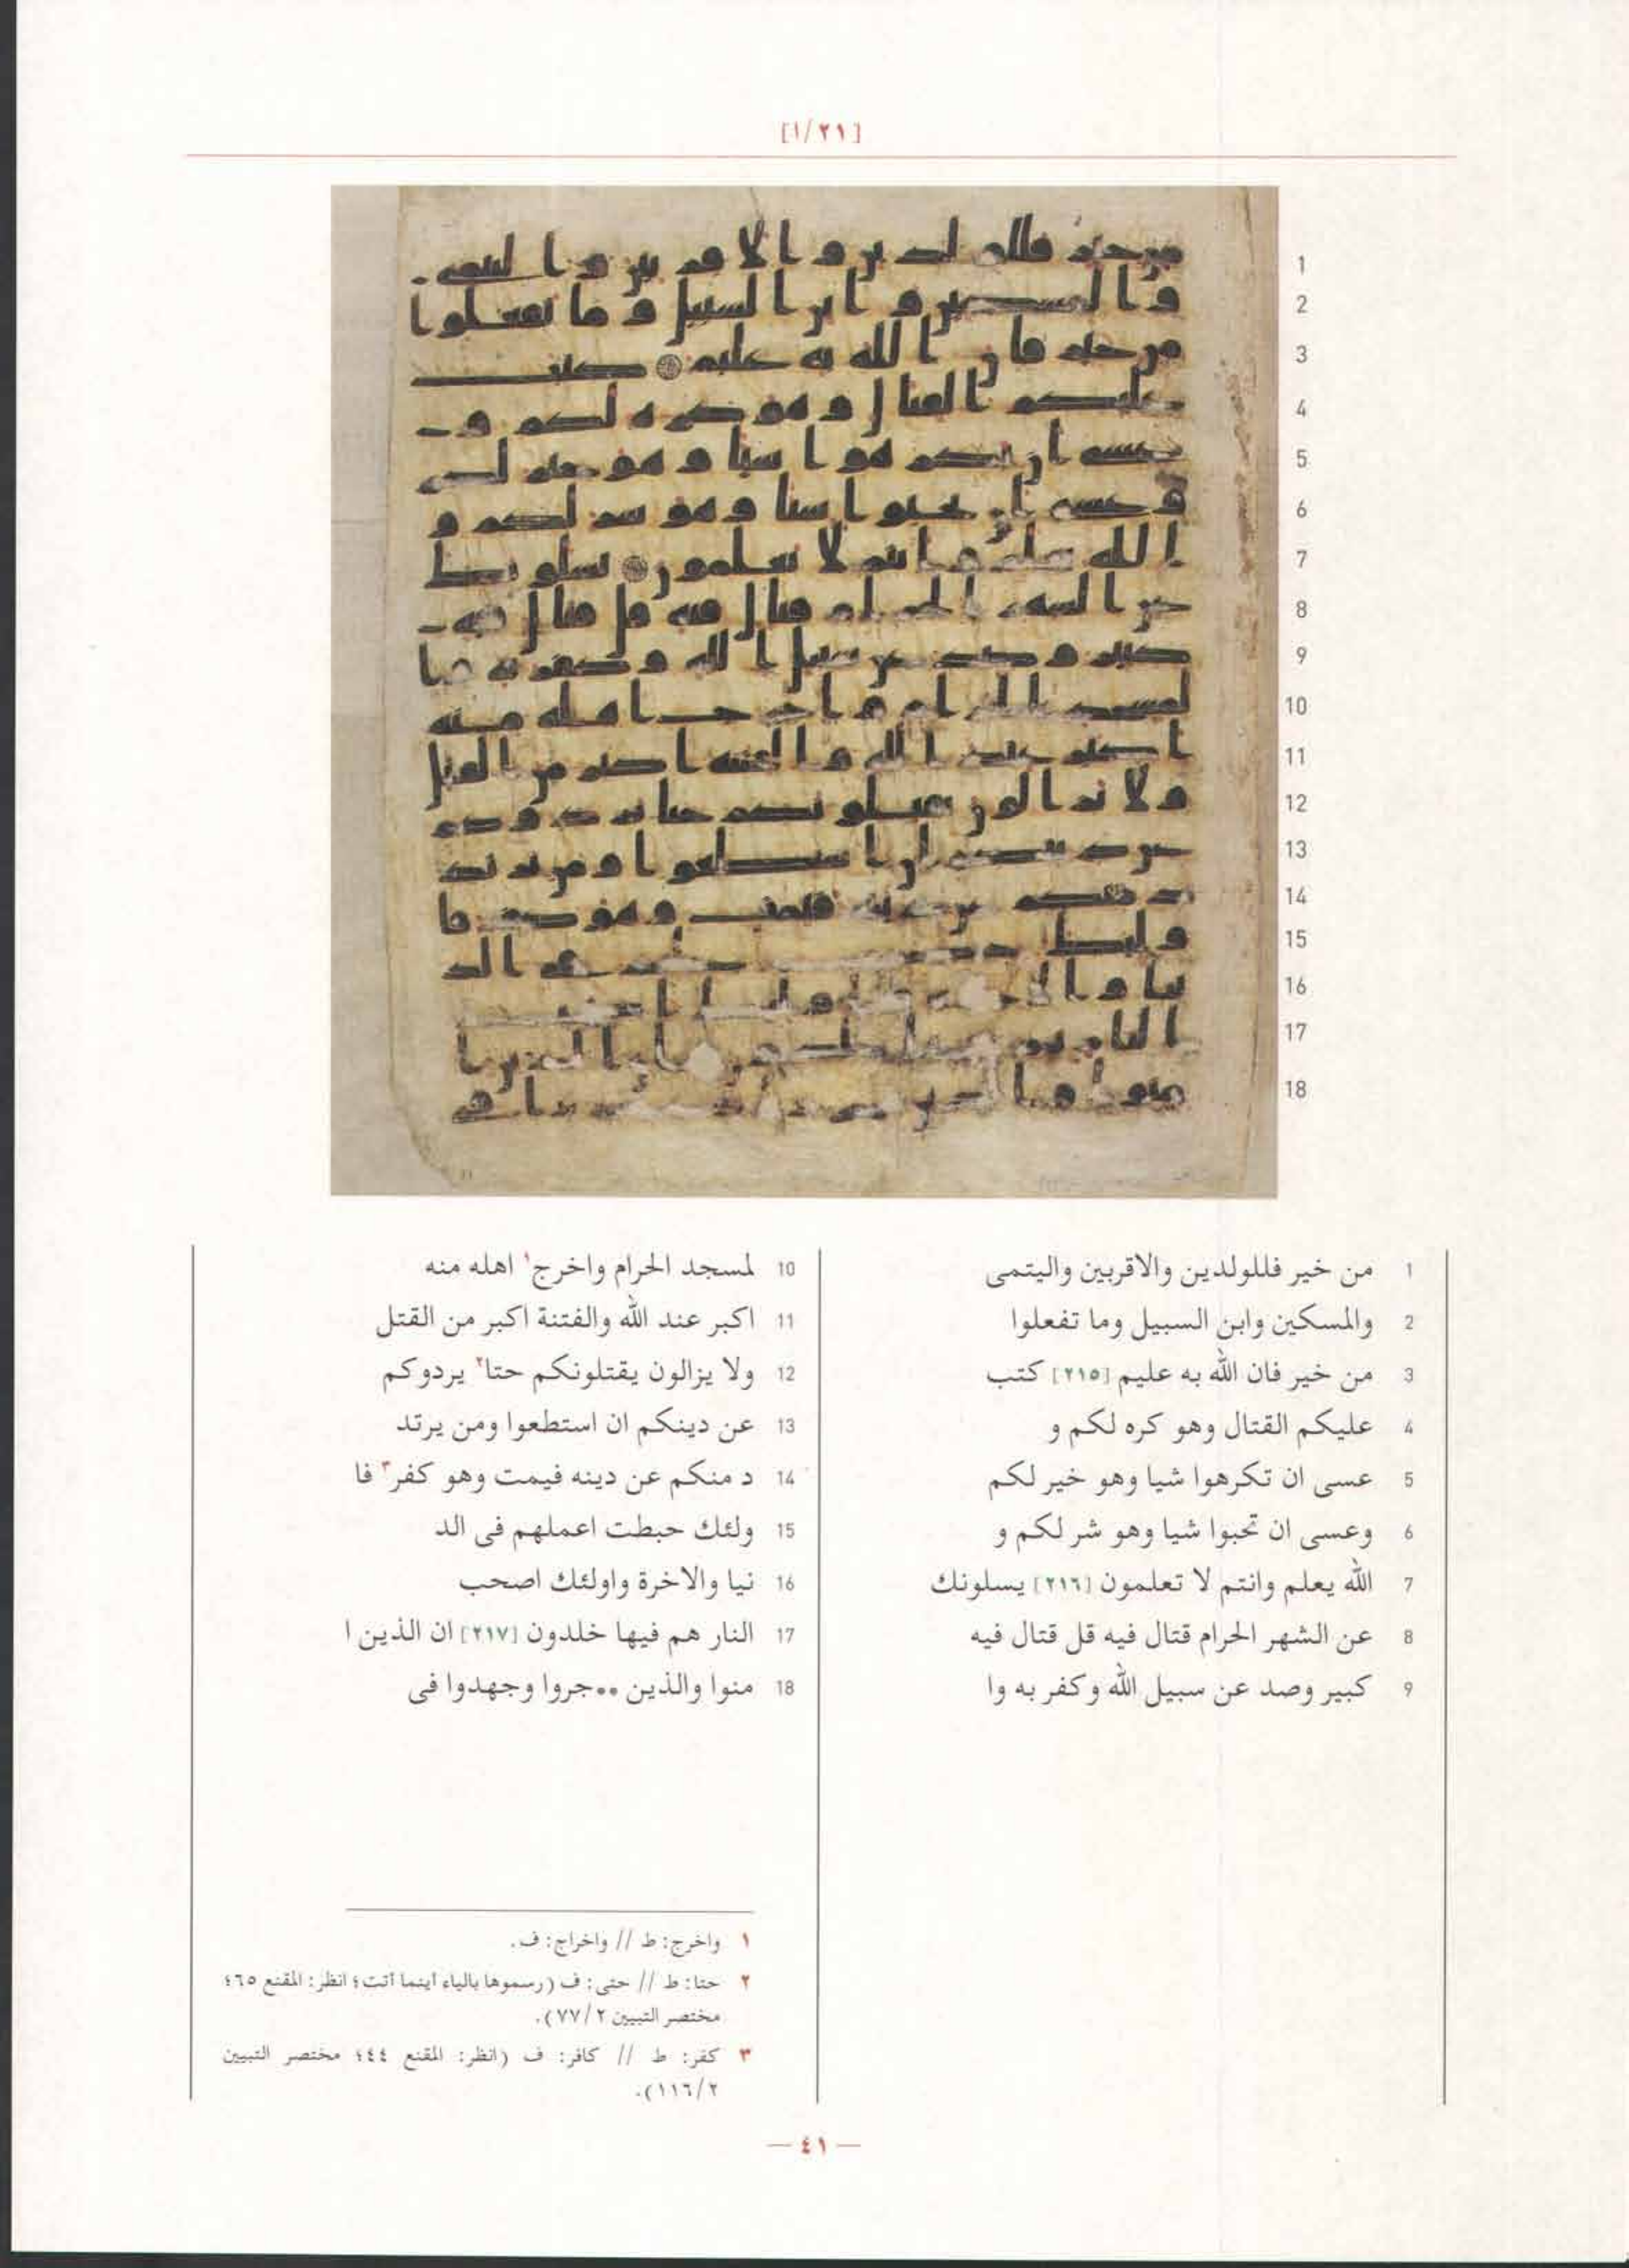 [١/٢١]
1 من خير فللولدين والاقربين واليتمى
2 والمسكين وابن السبيل وما تفعلوا
3 من خير فان الله به عليم [٢١٥] كتب
4 عليكم القتال وهو كره لكم و
5 عسى ان تكرهوا شيا وهو خير لكم
6 وعسى ان تحبوا شيا وهو شر لكم و
7 الله يعلم وانتم لا تعلمون [٢١٦] يسلونك
8 عن الشهر الحرام قتال فيه قل قتال فيه
9 كبير وصد عن سبيل الله وكفر به وا
10 لمسجد الحرام واخرج١ اهله منه
11 اكبر عند الله والفتنة اكبر من القتل
12 ولا يزالون يقتلونكم حتا٢ يردوكم
13 عن دينكم ان استطعوا ومن يرتد
14 د منكم عن دينه فيمت وهو كفر٣ فا
15 ولئك حبطت اعملهم فى الد
16 نيا والاخرة واولئك اصحب
17 النار هم فيها خلدون [٢١٧] ان الذين ا
18 منوا والذين ••جروا وجهدوا فى
١ واخرج: ط // واخراج: ف.
٢ حتا: ط // حتى: ف (رسموها بالياء أينما أتت؛ انظر: المقنع ٦٥؛
مختصر التبيين ٧٧/٢).
٣ كفر: ط // كافر: ف (انظر: المقنع ٤٤؛ مختصر التبيين
١١٦/٢).
— ٤١ —